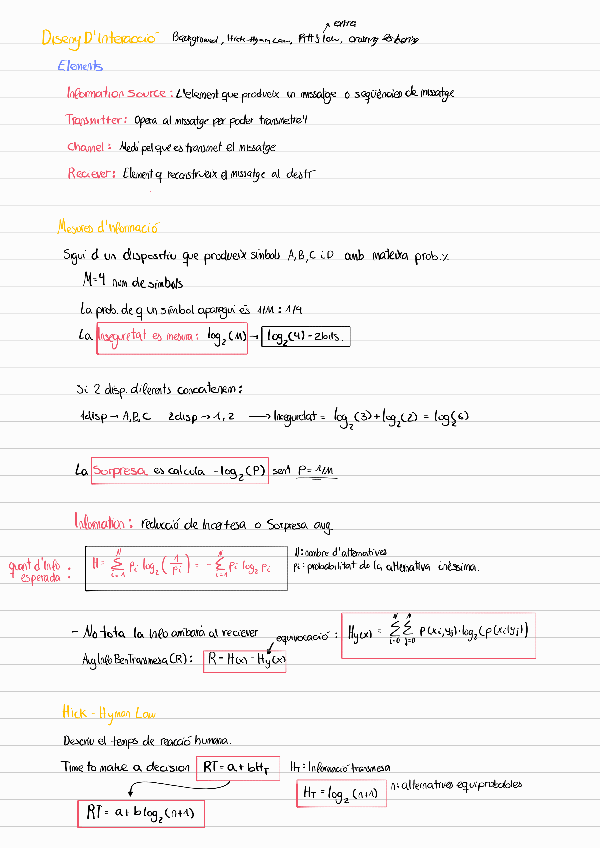 Disseny D'Interacció Background, Hick-Hyman Law, Fitts law,
entra
Elements
Information Source: L'element que produeix un missatge o seqüències de missatge
Transmitter: Opera al missatge per poder transmetre'l
Channel: Medi pel que es transmet el missatge
Reciever: Element q reconstrueix el missatge al destí
Mesures d'informació
Sigui d un dispositiu que produeix símbols A, B, C i D amb mateixa prob.%
M=4 num de símbols
La prob. de q un símbol aparegui és 1/M : 1/4
La Inseguretat es mesura: log₂(M) → log₂(4) = 2bits.
Si 2 disp. diferents concatenem:
1disp → A, B, C 2disp → 1, 2 → Inseguretat = log₂(3) + log₂(2) = log₂(6)
La Sorpresa es calcula -log₂(P) sent P=1/M
Information: reducció de Incertesa o Sorpresa avg.
quant d'Info esperada: H = Σ_{i=1}^{N} pi log₂(1/pi) = -Σ_{i=1}^{N} pi log₂ pi
N: nombre d'alternatives
pi: probabilitat de la alternativa i-éssima.
- No tota la Info arribarà al reciever
equivocació: Hy(x) = Σ_{i=0}^{N} Σ_{j=0}^{N} p(xi, yj) · log₂(p(xi|yj))
Avg Info Ben Transmesa (R): R = H(x) - Hy(x)
Hick - Hyman Law
Descriu el temps de reacció humana.
Time to make a decision RT = a + bHT HT: Informació transmesa
HT = log₂(n+1) n: alternatives equiprobables
RT = a + b log₂(n+1)